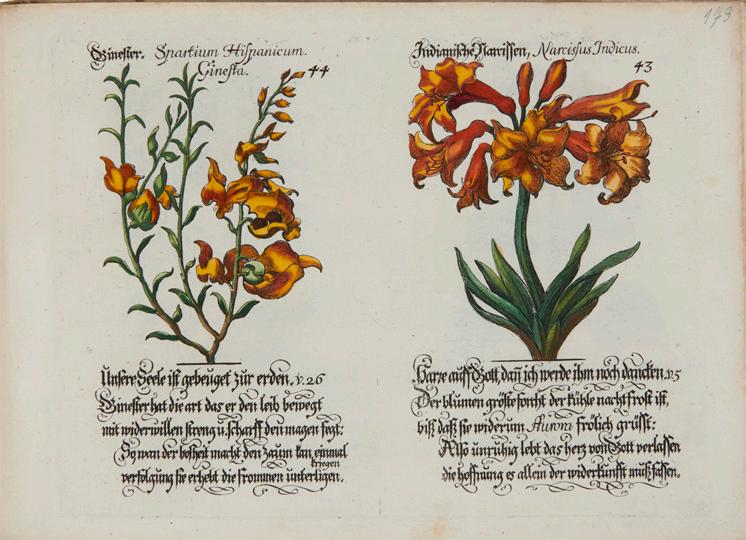 179
Ginester. Spartium Hispanicum.
Ginesta. 44
Unsere Seele ist gebeuget zur erden. v. 26
Ginester hat die art das er den leib bewegt
mit widerwillen streng u. scharff den magen fegt:
So man der bosheit macht den zaum kan einmal
kriegen
verfolgung sie erhebt die frommen unterligen.
Indianische Narcissen, Narcissus Indicus.
43
Harre auff Gott, dañ ich werde ihm noch dancken. v. 5
Der blumen gröste forcht der kühle nachtfrost ist,
biß daß sie widerum Aurora frölich grüsst:
Also unrühig lebt das herz von Gott verlassen
die hoffnung es allein der widerkunfft muß fassen.